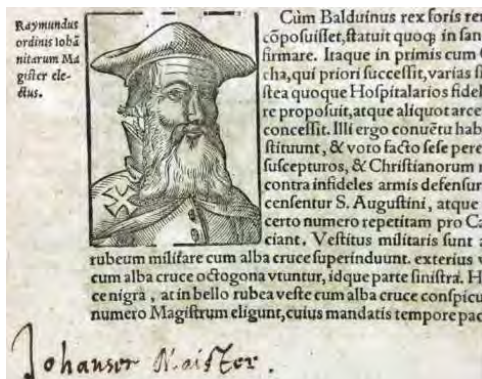 Raymundus
ordinis Iohā
nitarum Ma
gister ele-
ctus.
Cùm Balduinus rex foris
cōposuisset, statuit quoq; in
firmare. Itaque in primis cum
cha, qui priori successit, varias
stea quoque Hospitalarios
re proposuit, atque aliquot
concessit. Illi ergo conuētu
stituunt, & voto facto sese
suscepturos, & Christianorum
contra infideles armis
censentur S. Augustini, atque
certo numero repetitam pro
ciant. Vestitus militaris sunt
rubeum militare cum alba cruce superinduunt. exterius
cum alba cruce octogona vtuntur, idque parte sinistra.
ce nigra, at in bello rubea veste cum alba cruce
numero Magistrum eligunt, cuius mandatis tempore
Johanser Maister.